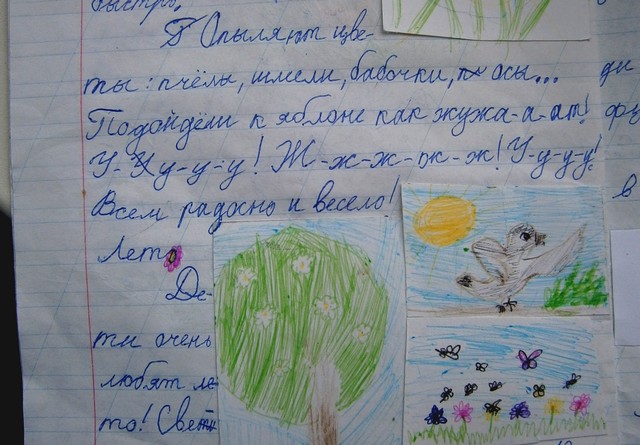 быстро.
Опыляют цве-
ты: пчёлы, шмели, бабочки, осы...
Подойдёш к яблоне как жужа-а-ат!
У-Ху-у-у! Ж-ж-ж-ж-ж! У-у-у-у!
Всем радосно и весело!
Лето
Де-
ти очень
любят ле-
то! Свет